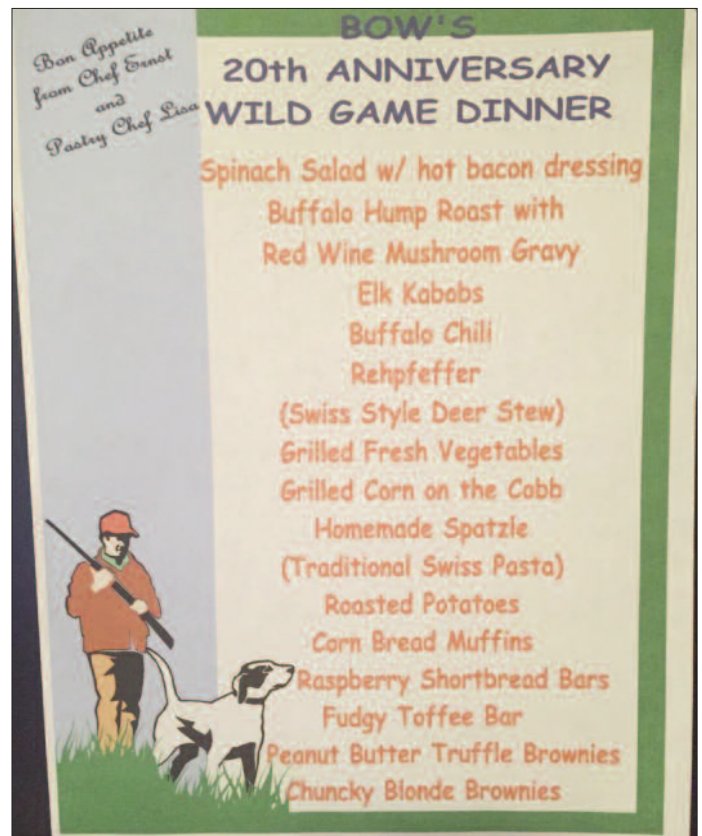 Bon Appetite
from Chef Ernst
and
Pastry Chef Lisa
BOW'S
20th ANNIVERSARY
WILD GAME DINNER
Spinach Salad w/ hot bacon dressing
Buffalo Hump Roast with
Red Wine Mushroom Gravy
Elk Kabobs
Buffalo Chili
Rehpfeffer
(Swiss Style Deer Stew)
Grilled Fresh Vegetables
Grilled Corn on the Cobb
Homemade Spatzle
(Traditional Swiss Pasta)
Roasted Potatoes
Corn Bread Muffins
Raspberry Shortbread Bars
Fudgy Toffee Bar
Peanut Butter Truffle Brownies
Chuncky Blonde Brownies